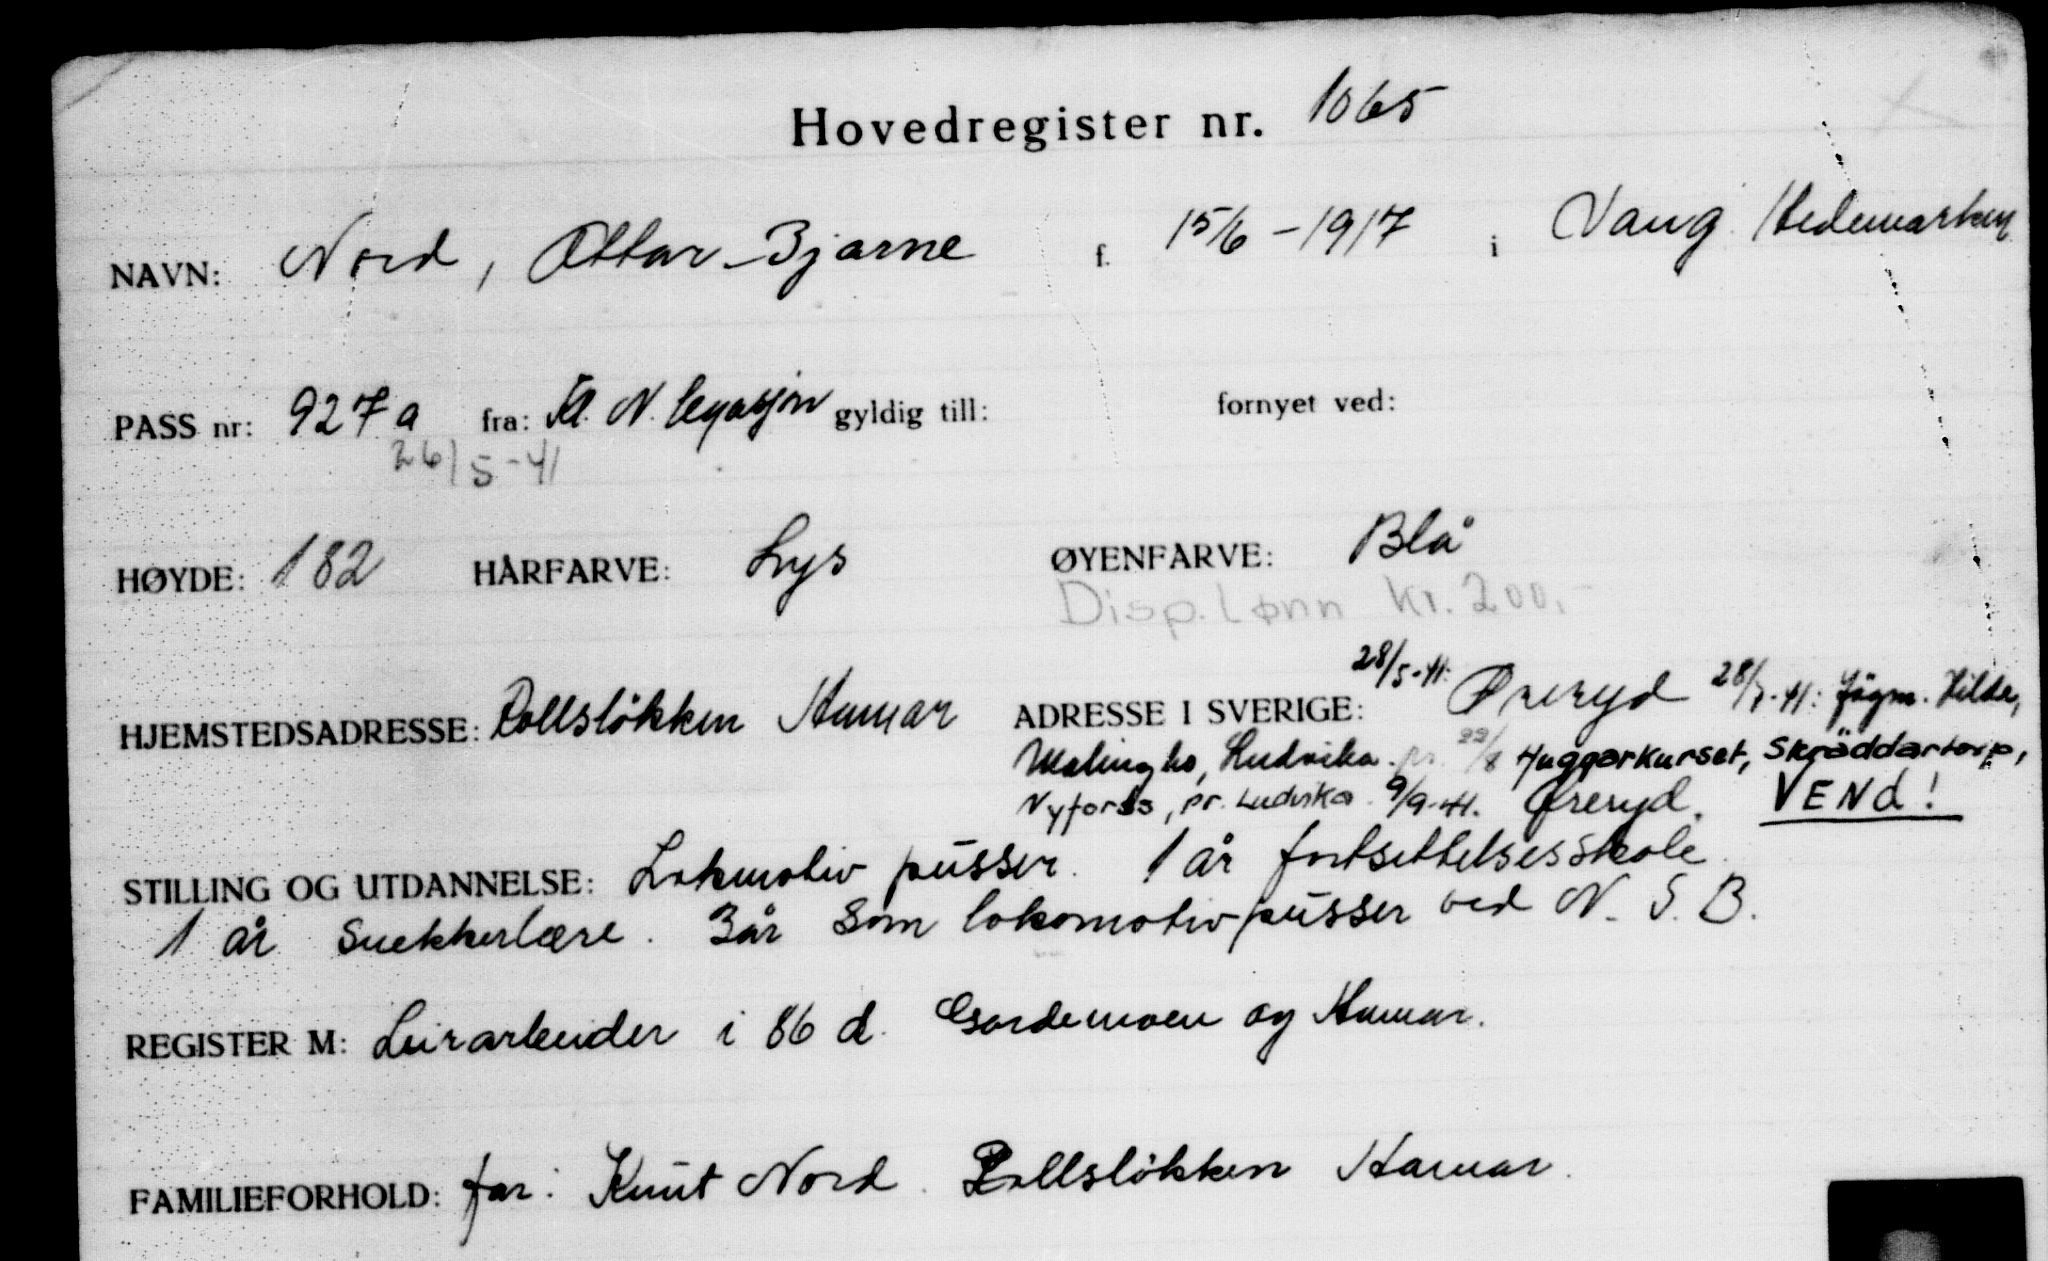 Hovedregister nr. 1065
NAVN: Nord, Ottar Bjarne f. 15/6-1917 i Vang Hedemarken
PASS nr: 927 a fra: Kl. N. legasjon gyldig till: fornyet ved:
26/5-41
HØYDE: 182 HÅRFARVE: Lys ØYENFARVE: Blå
Disp. Lønn kr. 200,-
HJEMSTEDSADRESSE: Rollsløkken Hamar ADRESSE I SVERIGE: 28/5-41: Øreryd 28/7-41: Jägm. Hilde,
Malingbo, Ludvika. 22/8 Huggarkurset, Skräddartorp,
Nyfors, pr. Ludvika 9/9-41. Øreryd. VENd!
STILLING OG UTDANNELSE: Lokmotiv pusser. 1 år fortsettelsesskole
1 år snekkerlære. 3 år som lokomotivpusser ved N. S. B.
REGISTER M: Leirarbeider i 86 d. Gardemoen og Hamar.
FAMILIEFORHOLD: far: Knut Nord. Rollsløkken Hamar.